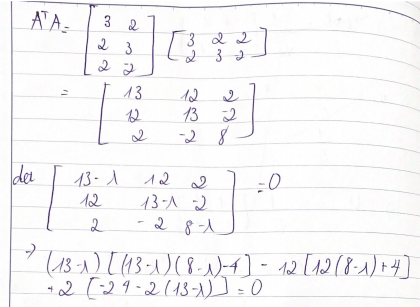 AᵀA = [ 3 2 ; 2 3 ; 2 -2 ] [ 3 2 2 ; 2 3 2 ]
= [ 13 12 2 ; 12 13 -2 ; 2 -2 8 ]
det [ 13-λ 12 2 ; 12 13-λ -2 ; 2 -2 8-λ ] = 0
→ (13-λ) [(13-λ)(8-λ)-4] - 12 [12(8-λ)+4]
+2 [-24-2(13-λ)] = 0